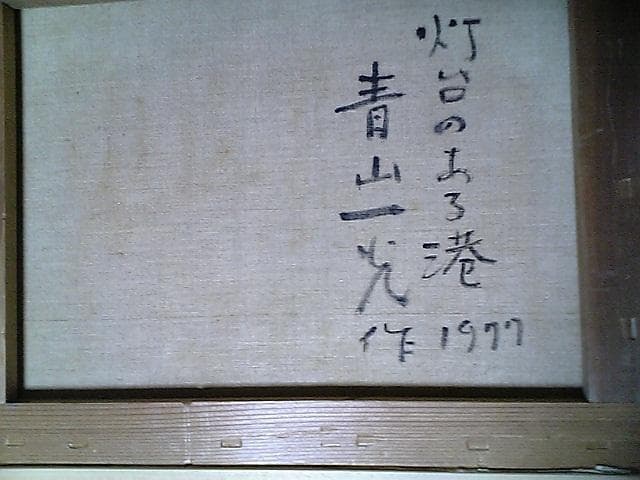 灯台のある港
青山一光
作 1977